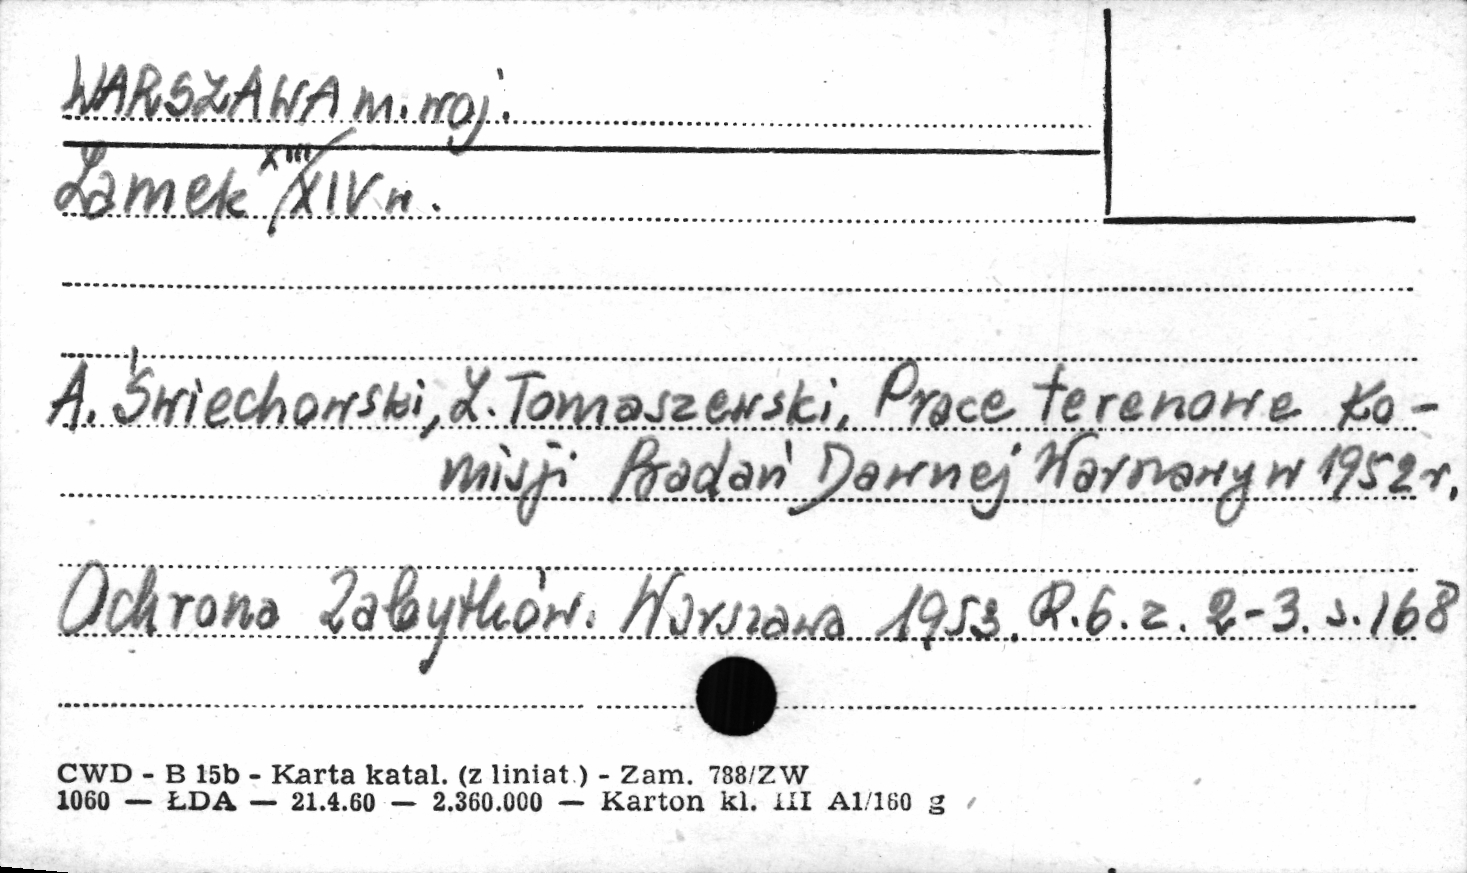 WARSZAWA m. woj.
Zamek XIII/XIV w.
A. Świechowski, Z. Tomaszewski, Prace terenowe Ko-
misji Badań Dawnej Warszawy w 1952 r.
Ochrona Zabytków. Warszawa 1953. R.6. z. 2-3. s. 168
CWD - B 15b - Karta katal. (z liniat.) - Zam. 788/ZW
1060 — ŁDA — 21.4.60 — 2.360.000 — Karton kl. III A1/160 g